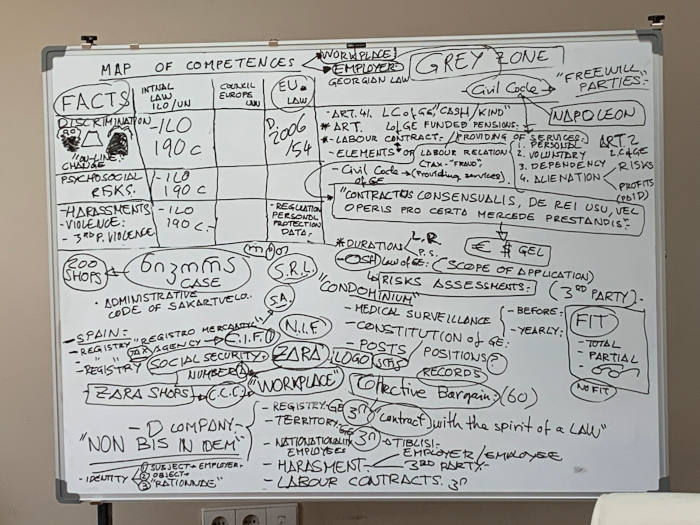 MAP OF COMPETENCES
"WORKPLACE"
EMPLOYER
GREY ZONE
GEORGIAN LAW
Civil Code
"FREEWILL"
PARTIES:
NAPOLEON
FACTS
INTNAL LAW ILO/UN
COUNCIL EUROPE
EU. LAW
DISCRIMINATION
"ON-LINE"
CHANGE
-ILO
190 C
D. 2006/54
PSYCHOSOCIAL RISKS.
-ILO
190 C
-HARASSMENTS
-VIOLENCE:
- 3RD P. VIOLENCE
-ILO
190 C.
- REGULATION PERSONAL PROTECTION DATA:
-ART. 41. LC of GE "CASH/KIND"
*ART. L of GE FUNDED PENSIONS:
*-LABOUR CONTRACT: /PROVIDING OF SERVICES:
-ELEMENTS* OF LABOUR RELATION
(TAX-"FRAUD")
- Civil Code of GE → (Providing services)
1. PERSONAL
2. VOLUNTARY
3. DEPENDENCY
4. ALIENATION
ART 2
LC of GE
RISKS
PROFITS
"CONTRACTUS CONSENSUALIS, DE REI USU, VEL
OPERIS PRO CERTA MERCEDE PRESTANDIS"
€ $ GEL
200 SHOPS
CASE
- ADMINISTRATIVE CODE OF SAKARTVELO.
S.R.L.
S.A.
*DURATION: L.R
P.S.
-OSH Law of GE: (SCOPE OF APPLICATION)
RISKS ASSESSMENTS:
(3RD PARTY).
"CONDOMINIUM"
- MEDICAL SURVEILLANCE
- BEFORE:
- YEARLY:
FIT
- TOTAL
- PARTIAL
NO FIT
- CONSTITUTION of GE:
- POSTS
POSITIONS?
RECORDS
-SPAIN:
-REGISTRY "REGISTRO MERCANTIL"
" " TAX AGENCY → C.I.F.
N.I.F
-REGISTRY SOCIAL SECURITY:
NUMBER
ZARA
LOGO
ZARA SHOPS → C.C.C.
"WORKPLACE"
Collective Bargain: (60)
- D COMPANY:
"NON BIS IN IDEM"
- IDENTITY
1 SUBJECT → EMPLOYER.
2 OBJECT →
3 "RATIONNALE"
- REGISTRY: GE
"contract) with the spirit of a LAW"
- TERRITORY: GE
- NATIONATIONALITY EMPLOYEES
→ TIBLISI
- HARASMENT:
EMPLOYER/EMPLOYEE
3RD PARTY
- LABOUR CONTRACTS.